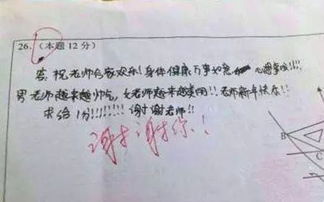 26.（本题12分）
答:祝老师合家欢乐!身体健康万事如意 心想事成!!!!
男老师越来越帅气,女老师越来越美丽!!老师新年快乐!!
求给1分!!!!!!!!谢谢老师!!
谢谢你!!